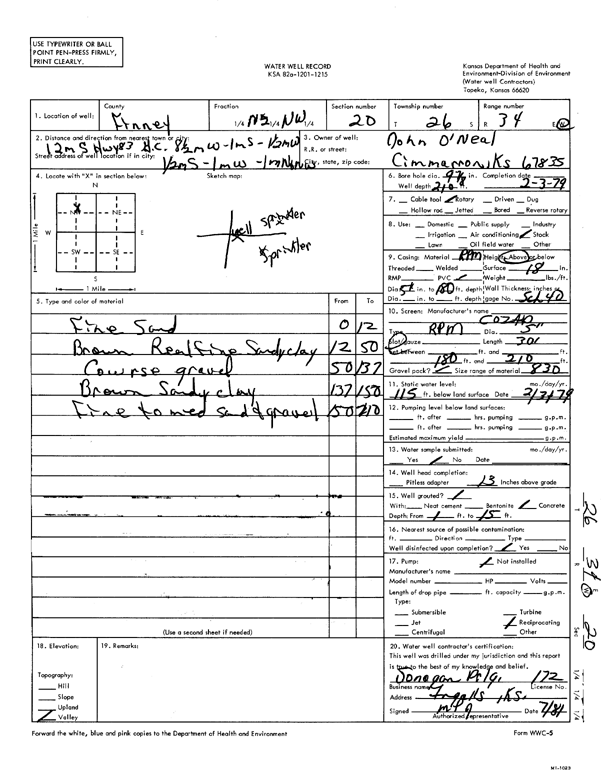 USE TYPEWRITER OR BALL
POINT PEN-PRESS FIRMLY,
PRINT CLEARLY.
WATER WELL RECORD
KSA 82a-1201-1215
Kansas Department of Health and
Environment-Division of Environment
(Water well Contractors)
Topeka, Kansas 66620
1. Location of well: County Finney Fraction 1/4 NE 1/4 NW 1/4 Section number 20 Township number T 26 S Range number R 34 E W
2. Distance and direction from nearest town or city:
12mS Hwy83 H.C. 8½mW-1mS-1½mW
Street address of well location if in city:
3. Owner of well: John O'Neal
R.R. or street:
City, state, zip code: Cimmarron, Ks 67835
4. Locate with "X" in section below:
N
NW NE
W E
SW SE
S
1 Mile
1 Mile
Sketch map:
well sprinkler
sprinkler
5. Type and color of material From To
Fine Sand 0 12
Brown Real fine Sandy clay 12 50
Course gravel 50 137
Brown Sandy clay 137 150
Fine to med sand & gravel 150 210
(Use a second sheet if needed)
6. Bore hole dia. in. Completion date
Well depth 210 ft. 2-3-79
7. Cable tool Rotary Driven Dug
Hollow rod Jetted Bored Reverse rotary
8. Use: Domestic Public supply Industry
Irrigation Air conditioning Stock
Lawn Oil field water Other
9. Casing: Material RPM Height: Above or below
Threaded Welded Surface 18 in.
RMP PVC Weight lbs./ft.
Dia. 5 in. to 180 ft. depth Wall Thickness: inches or
Dia. in. to ft. depth gage No. Sch 40
10. Screen: Manufacturer's name
COZAD
Type RPM Dia. 5"
Slot/gauze Length 30'
Set between ft. and ft.
180 ft. and 210 ft.
Gravel pack? Size range of material 830
11. Static water level: mo./day/yr.
115 ft. below land surface Date 2/3/79
12. Pumping level below land surfaces:
ft. after hrs. pumping g.p.m.
ft. after hrs. pumping g.p.m.
Estimated maximum yield g.p.m.
13. Water sample submitted: mo./day/yr.
Yes No Date
14. Well head completion:
Pitless adapter 13 Inches above grade
15. Well grouted?
With: Neat cement Bentonite Concrete
Depth: From 1 ft. to 15 ft.
16. Nearest source of possible contamination:
ft. Direction Type
Well disinfected upon completion? Yes No
17. Pump: Not installed
Manufacturer's name
Model number HP Volts
Length of drop pipe ft. capacity g.p.m.
Type:
Submersible Turbine
Jet Reciprocating
Centrifugal Other
18. Elevation:
Topography:
Hill
Slope
Upland
Valley
19. Remarks:
20. Water well contractor's certification:
This well was drilled under my jurisdiction and this report
is true to the best of my knowledge and belief.
Donegan Drlg. 172
Business name License No.
Address Ingalls, Ks.
Signed Date
Authorized representative
T 26
R 34 E W
Sec 20
1/4 1/4 1/4
Forward the white, blue and pink copies to the Department of Health and Environment
Form WWC-5
M1-1023